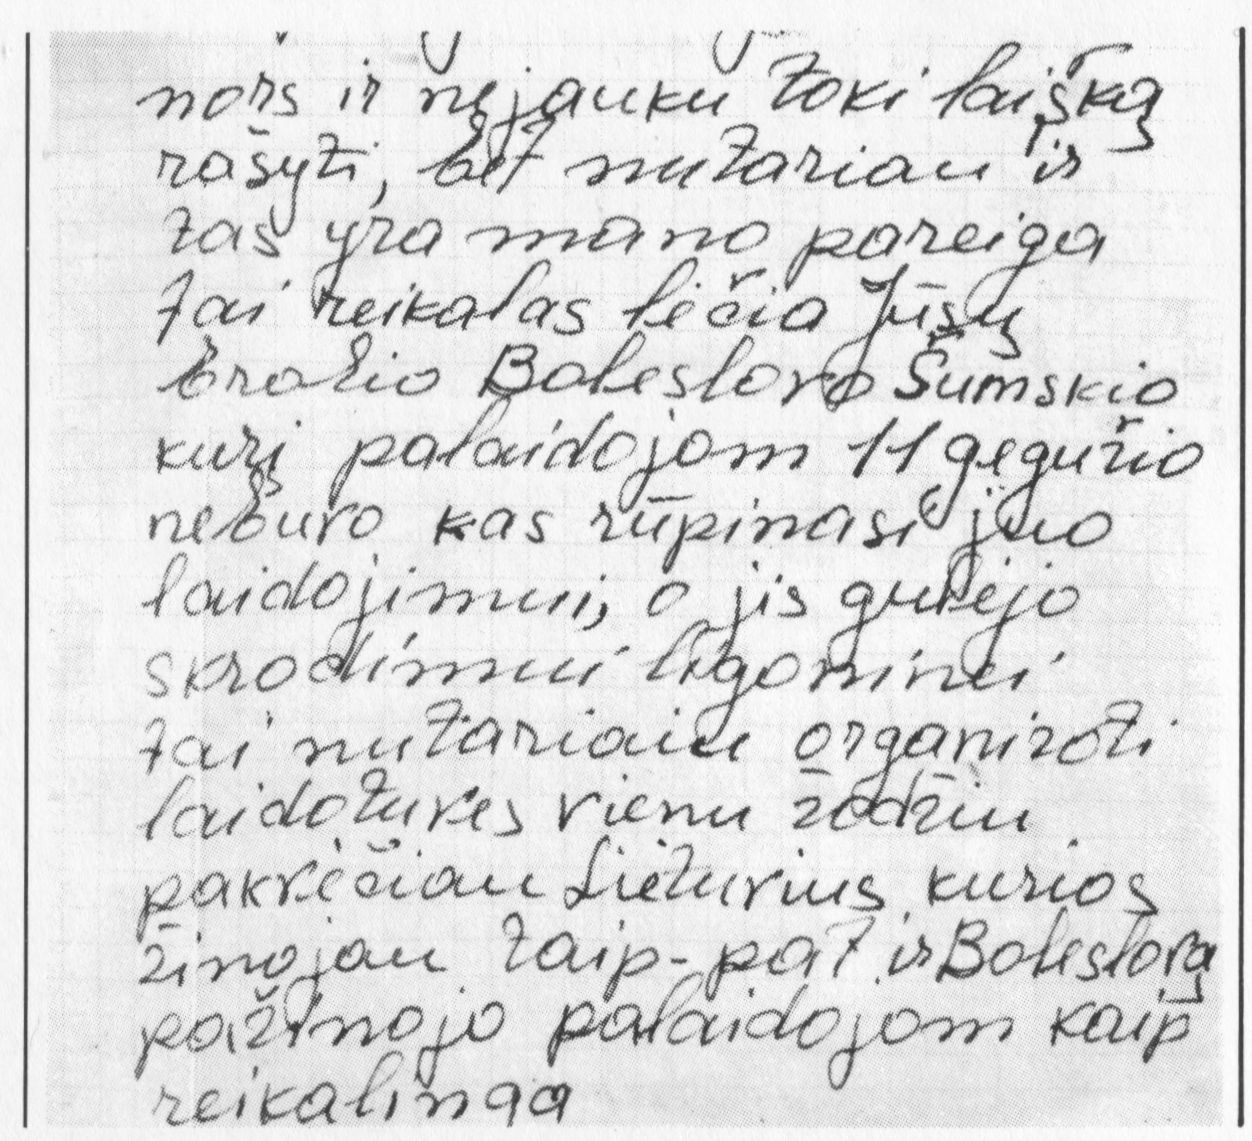 nors ir nejauku toki laišką
rašyti, bet nutariau ir
tas yra mano pareiga
tai reikalas liečia Jūsų
brolio Boleslovo Šumskio
kurį palaidojom 11 gegužio
nebuvo kas rūpinasi juo
laidojimui, o jis gulėjo
skrodimui ligoninei
tai nutariau organizoti
laidotuves vienu žodžiu
pakvėčiau Lietuvius kurios
žinojau taip-pat ir Boleslovą
pažinojo palaidojom kaip
reikalinga